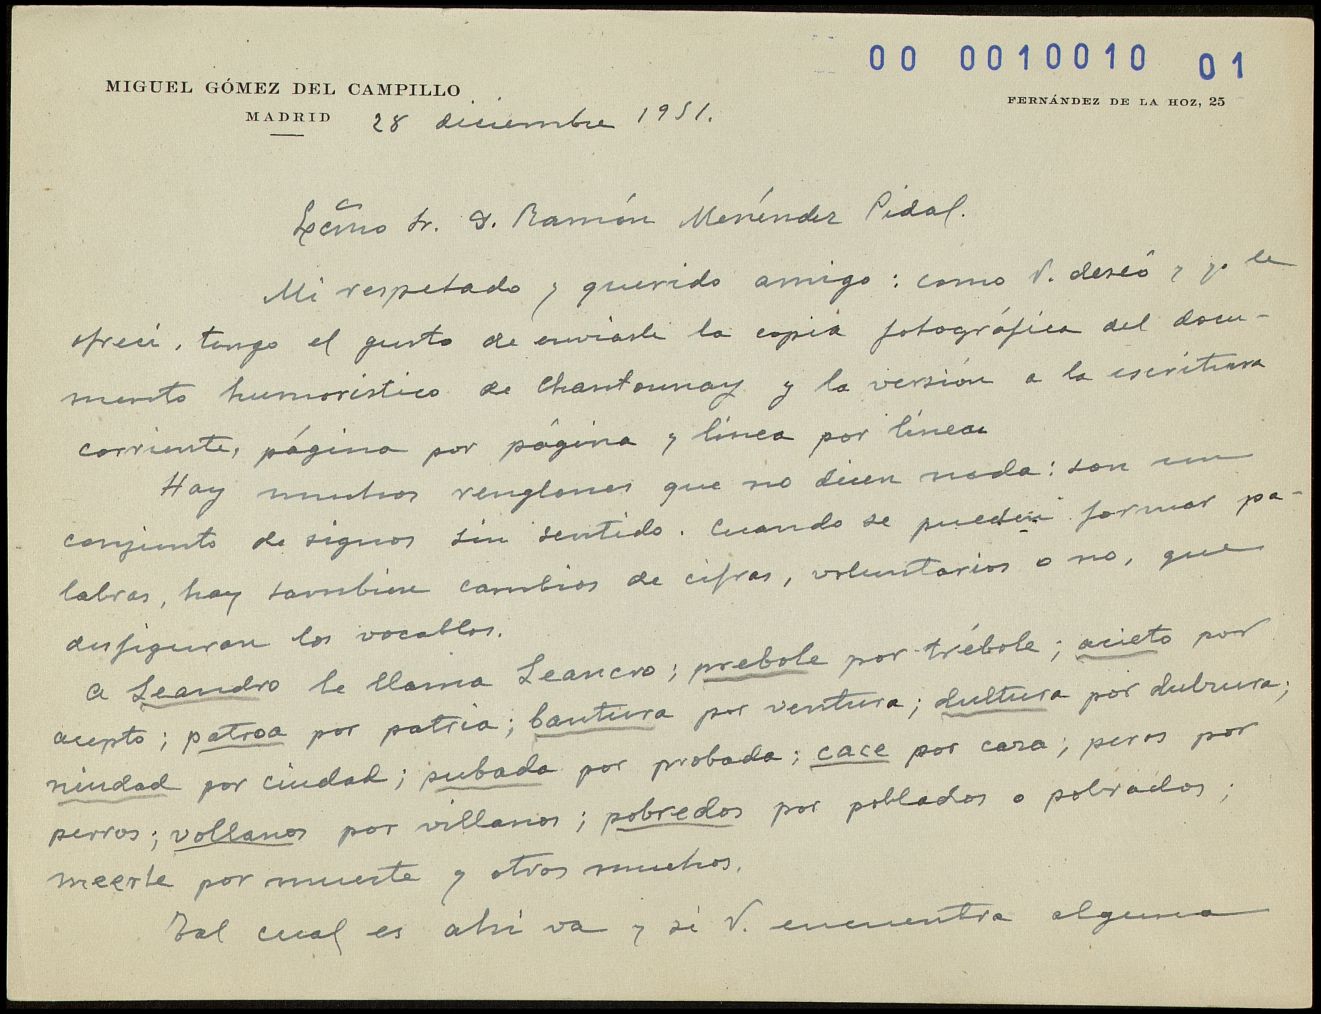 00 0010010 01
MIGUEL GÓMEZ DEL CAMPILLO
FERNÁNDEZ DE LA HOZ, 25
MADRID 28 diciembre 1951.
Excmo Sr. D. Ramón Menéndez Pidal.
Mi respetado y querido amigo: como V. deseó y yo le
ofrecí, tengo el gusto de enviarle la copia fotográfica del docu-
mento humorístico de Chantounay y la versión a la escritura
corriente, página por página y línea por línea
Hay muchos renglones que no dicen nada: son un
conjunto de signos sin sentido. Cuando se pueden formar pa-
labras, hay tambien cambios de cifras, voluntarios o no, que
desfiguran los vocablos.
A Leandro le llama Leancro; prebole por trébole; acieto por
acepto; patroa por patria; bantura por ventura; dultura por dulzura;
niudad por ciudad; pubada por probada; cace por caza; peros por
perros; vollanos por villanos; pobredos por poblados o pobrados;
meerte por muerte y otros muchos.
Tal cual es ahí va y si V. encuentra alguna